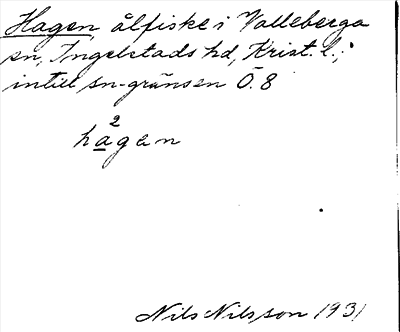 Hagen, ålfiske i Valleberga
sn, Ingelstads hd, Krist. l.;
intill sn-gränsen Ö. 8
2
hagen
Nils Nilsson 1931